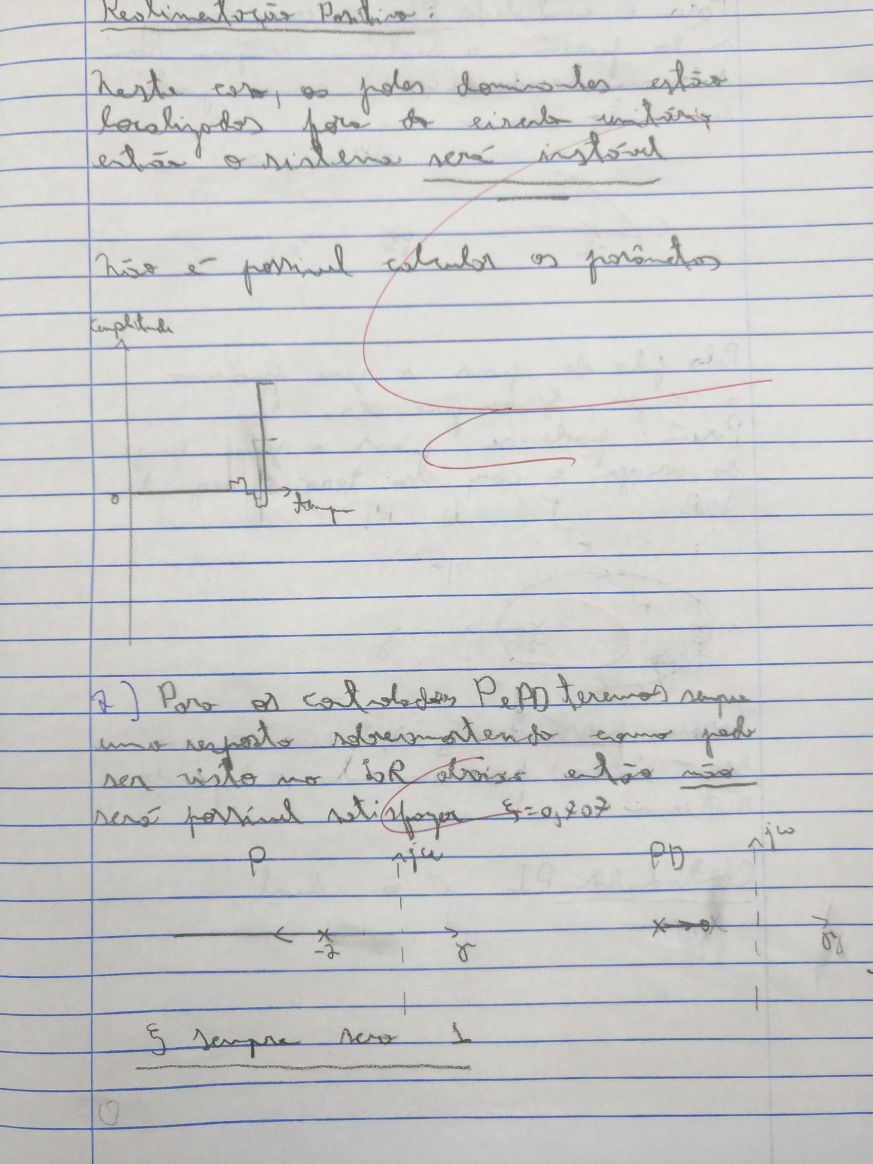 Realimentação Positiva:
Neste caso, os polos dominantes estão
localizados fora do circulo unitário
então o sistema será instável
Não é possível calcular os parâmetros
amplitude
0
tempo
2] Para os controladores P e PD teremos sempre
uma resposta sobreamortecida como pode
ser visto no LR abaixo então não
será possível satisfazer ξ=0,707
P jω PD jω
-2 σ σ
ξ sempre sera 1